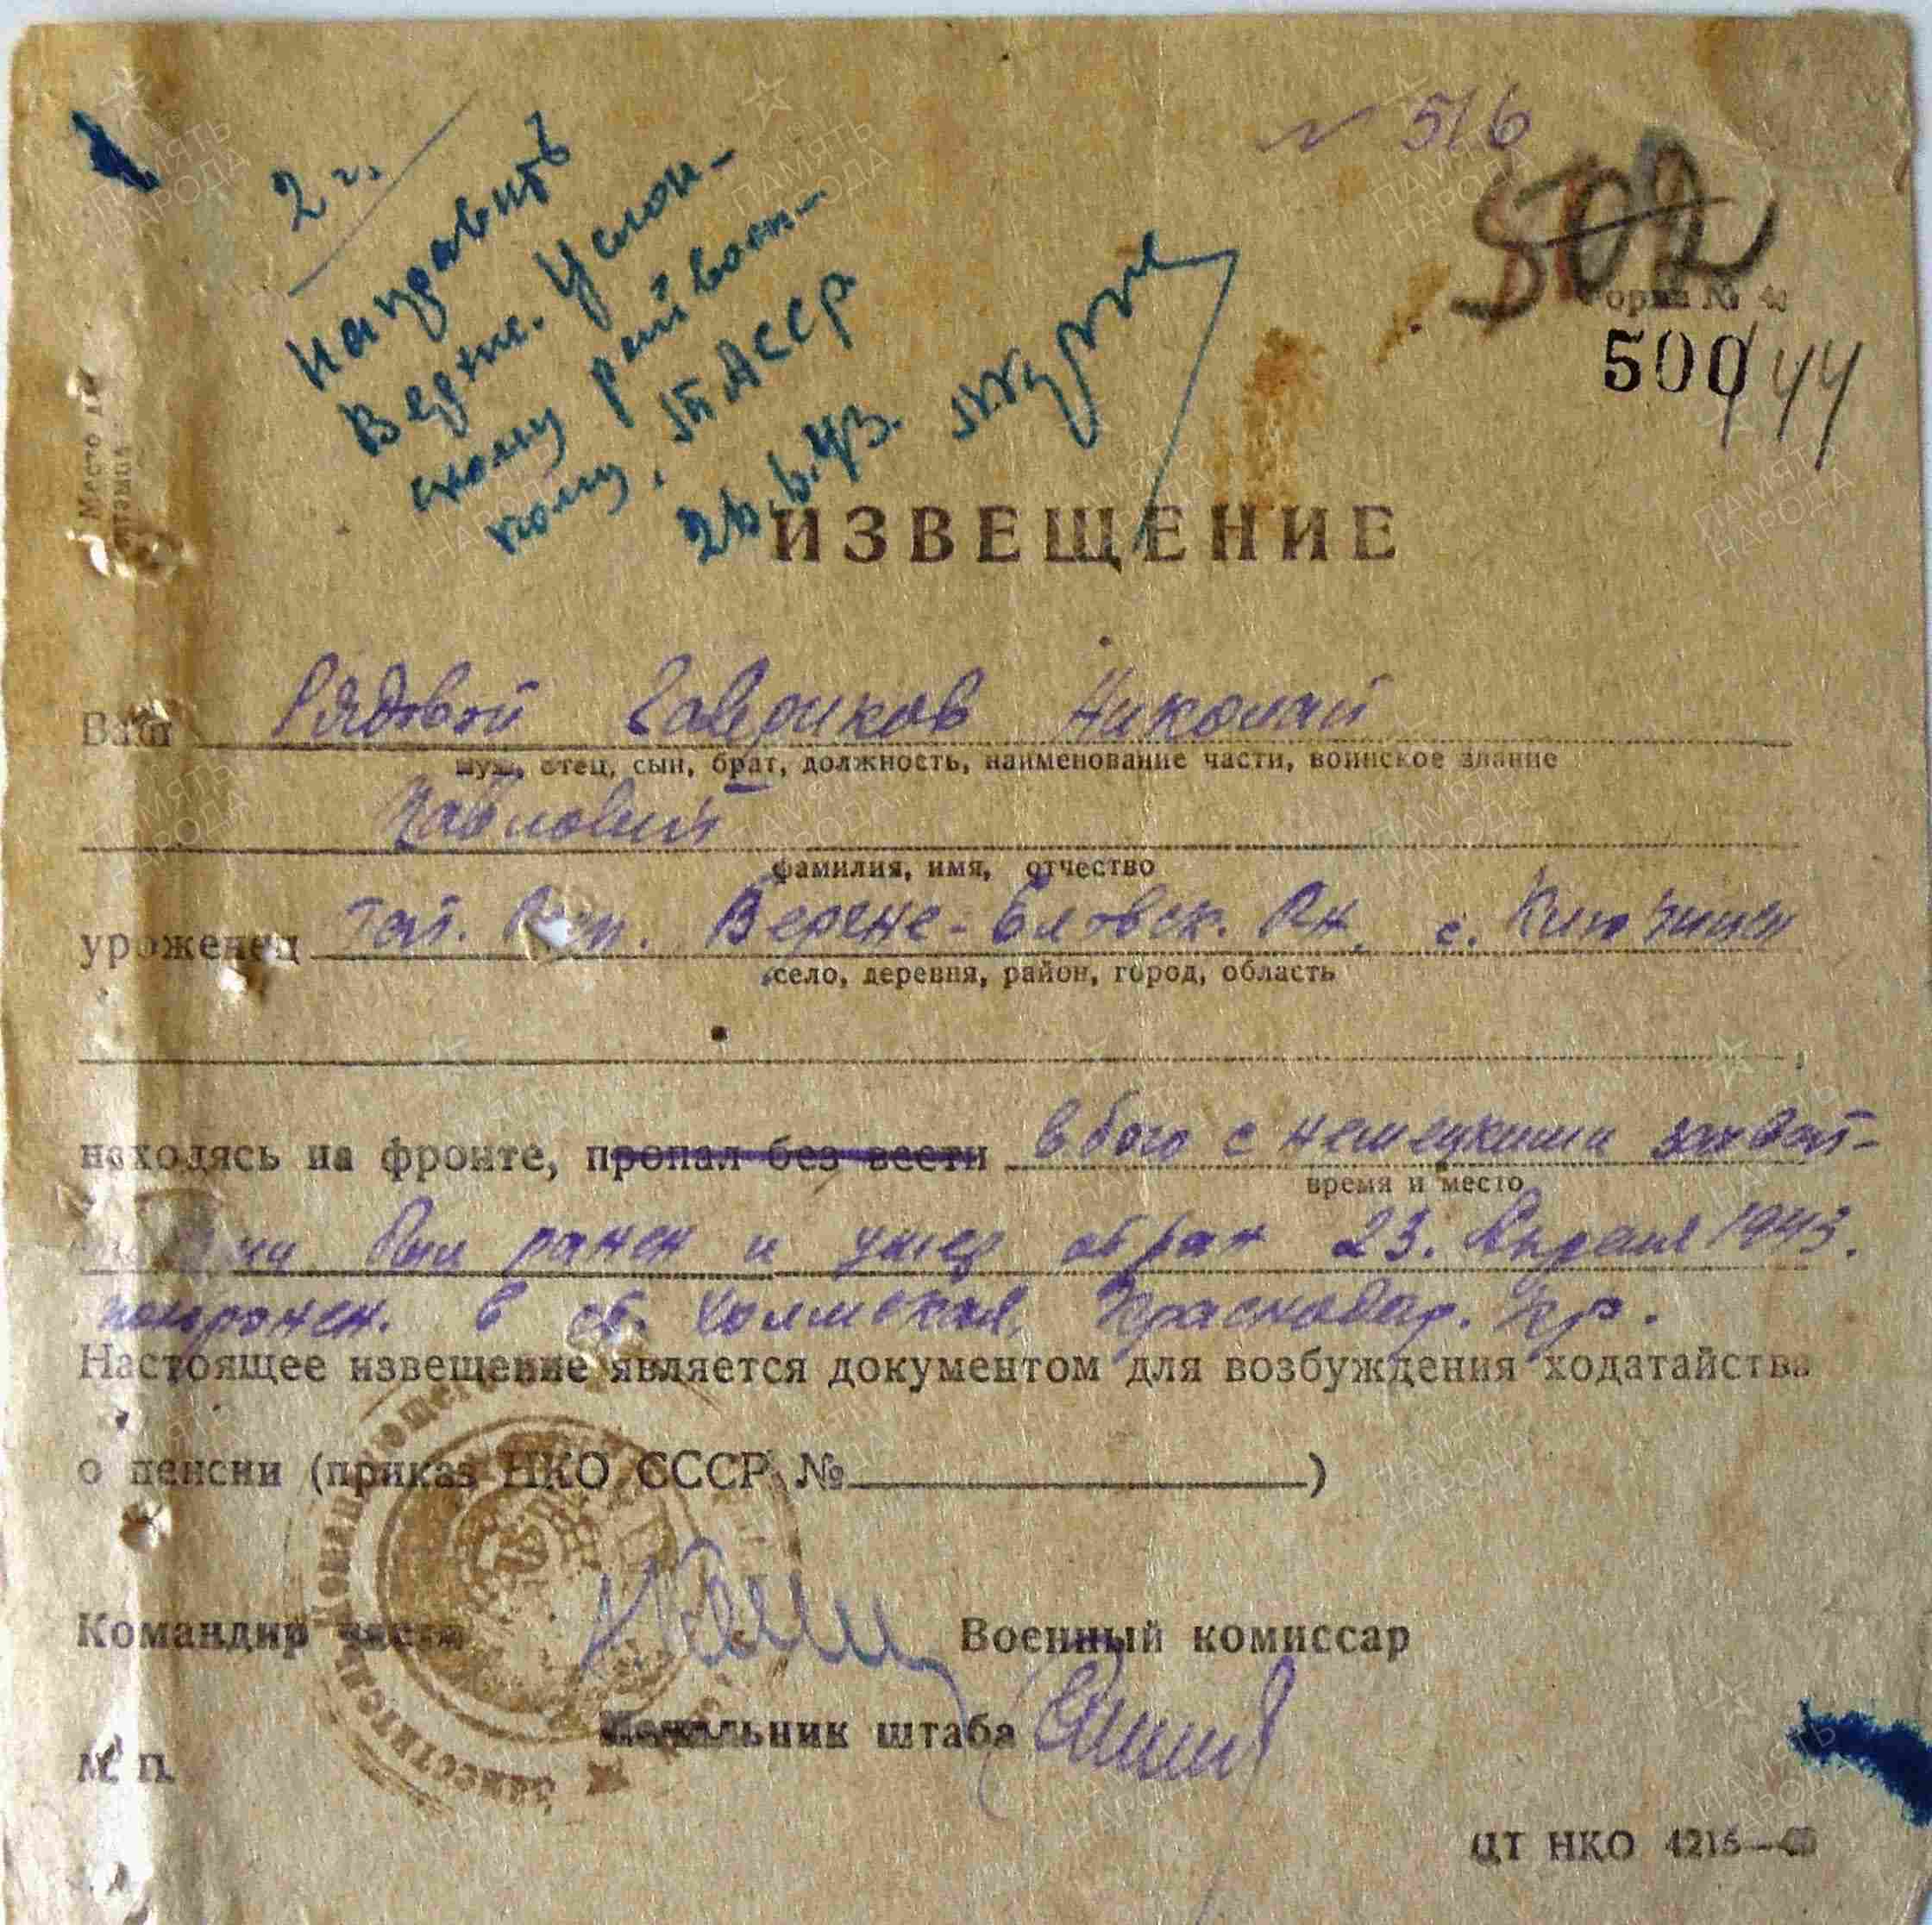 N 516
502
Форма № 4
500/44
2 г.
Направить
Верхне. Услон-
скому райвоен-
кому, ТАССР
26.6.43.
ИЗВЕЩЕНИЕ
Ваш Рядовой Гавриков Николай
муж, отец, сын, брат, должность, наименование части, воинское звание
Павлович
фамилия, имя, отчество
уроженец Тат. Реп. Верхне-Еловск. Рн. с.
село, деревня, район, город, область
находясь на фронте, пропал без вести в бою с немецкими захват-
время и место
чиками был ранен и умер от ран 23. Апреля 1943.
похоронен. в ст. Холмская, Краснодар. Кр.
Настоящее извещение является документом для возбуждения ходатайства
о пенсии (приказ НКО СССР № )
Командир части Военный комиссар
Начальник штаба
М. П.
ЦТ НКО 4216—
Место для
ПАМЯТЬ НАРОДА